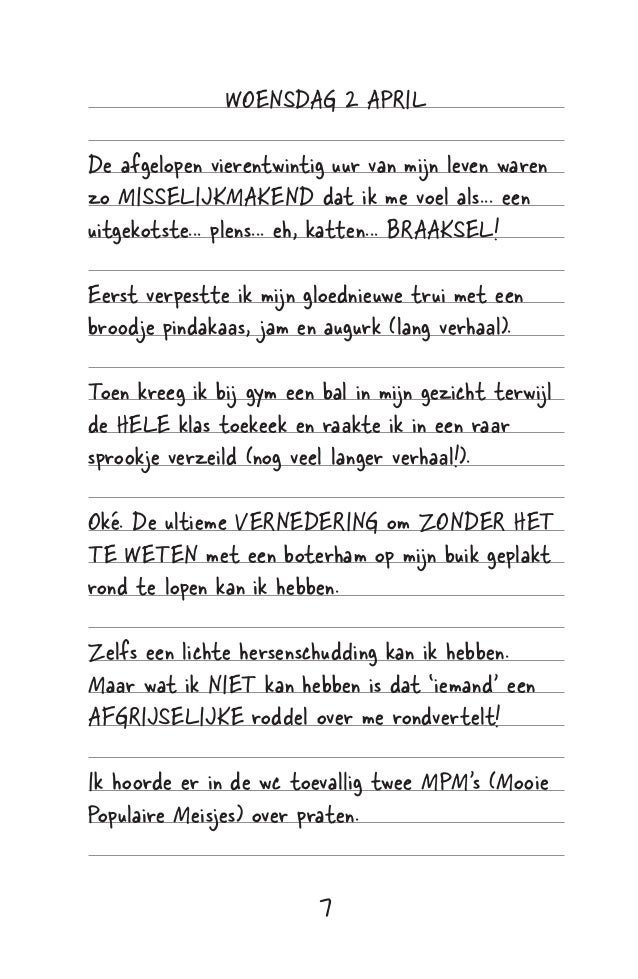 WOENSDAG 2 APRIL
De afgelopen vierentwintig uur van mijn leven waren
zo MISSELIJKMAKEND dat ik me voel als... een
uitgekotste... plens... eh, katten... BRAAKSEL!
Eerst verpestte ik mijn gloednieuwe trui met een
broodje pindakaas, jam en augurk (lang verhaal).
Toen kreeg ik bij gym een bal in mijn gezicht terwijl
de HELE klas toekeek en raakte ik in een raar
sprookje verzeild (nog veel langer verhaal!).
Oké. De ultieme VERNEDERING om ZONDER HET
TE WETEN met een boterham op mijn buik geplakt
rond te lopen kan ik hebben.
Zelfs een lichte hersenschudding kan ik hebben.
Maar wat ik NIET kan hebben is dat ‘iemand’ een
AFGRIJSELIJKE roddel over me rondvertelt!
Ik hoorde er in de wc toevallig twee MPM’s (Mooie
Populaire Meisjes) over praten.
7